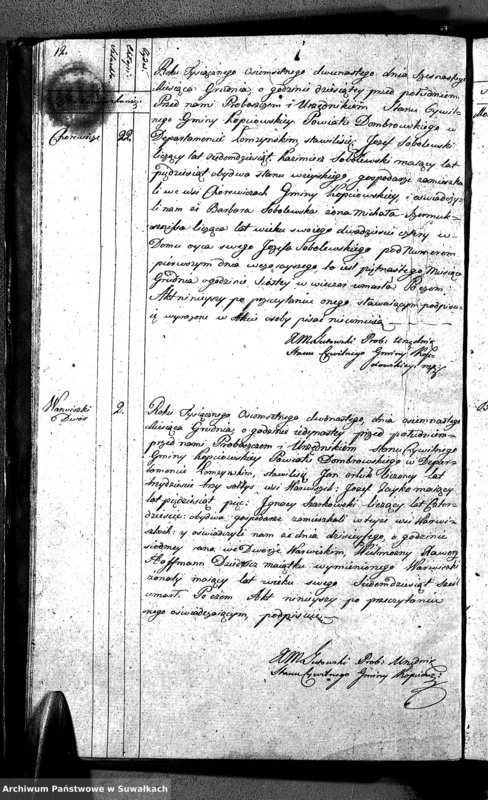 12.
Roku Tysiącznego ósiemsetnego dwunastego dnia Szesnastego
Miesiąca Grudnia, o godzinie dziesiątey przed południem
Przed nami Proboszczem i Urzędnikiem Stanu Cywil-
nego Gminy Kopciowskiey Powiatu Dombrowskiego w
Chorewicze 22. Departamencie Łomżyńskim, stawili się Jozef Sobolewski
liczący lat siedemdziesiąt, Kazimierz Sobolewski maiący lat
pięćdziesiąt obydwa stanu wieyskiego, gospodarze zamieszka-
li we wsi Chorewiczach Gminy Kopciowskiey, i oświadczy-
li nam że Barbara Sobolewska żona Michała
licząca lat wieku swoiego dwadzieścia cztery w
Domu oyca swego Jozefa Sobolewskiego pod Numerem
pierwszym dnia wczorayszego, to iest piętnastego Miesiąca
Grudnia o godzinie szóstey w wieczor umarła. Po czem
Akt ninieyszy po przeczytaniu onego stawaiącym podpisu-
ię wyrażone w Akcie osoby pisać nieumieią
Prob: Urzędnik
Stanu Cywilnego Gminy Kop-
ciowskiey mp
Warwiszki
Dwór
2.
Roku Tysiącznego ósiemsetnego dwónastego, dnia ósiemnastego
Miesiąca Grudnia, o godzinie iedynastey przed południem
przed nami Proboszczem i Urzędnikiem Stanu Cywilnego
Gminy Kopciowskiey Powiatu Dombrowskiego w Depar-
tamencie Łomżyńskim, stawili się Jan liczący lat
trzydzieście trzy sołtys wsi Warwiszek: Jozef maiący
lat pięćdziesiąt pięć: Ignacy Żarkowski liczący lat Czter-
dzieście: obydwa gospodarze zamieszkali w teyże wsi Warwi-
szkach: y oświadczyli nam że dnia dzisieyszego, o godzinie
siódmey rano, we Dworze Warwiskim, Wielmożny Xawery
Hoffmann Dziedzic maiątku wymienionego Warwiszki
żonaty maiący lat wieku swego Siedemdziesiąt Sześć
umarł. Po czem Akt ninieyszy po przeczytaniu
onego oświadczaiącym, podpisuię
Prob: Urzędnik
Stanu Cywilnego Gminy Kopciow:
Archiwum Państwowe w Suwałkach